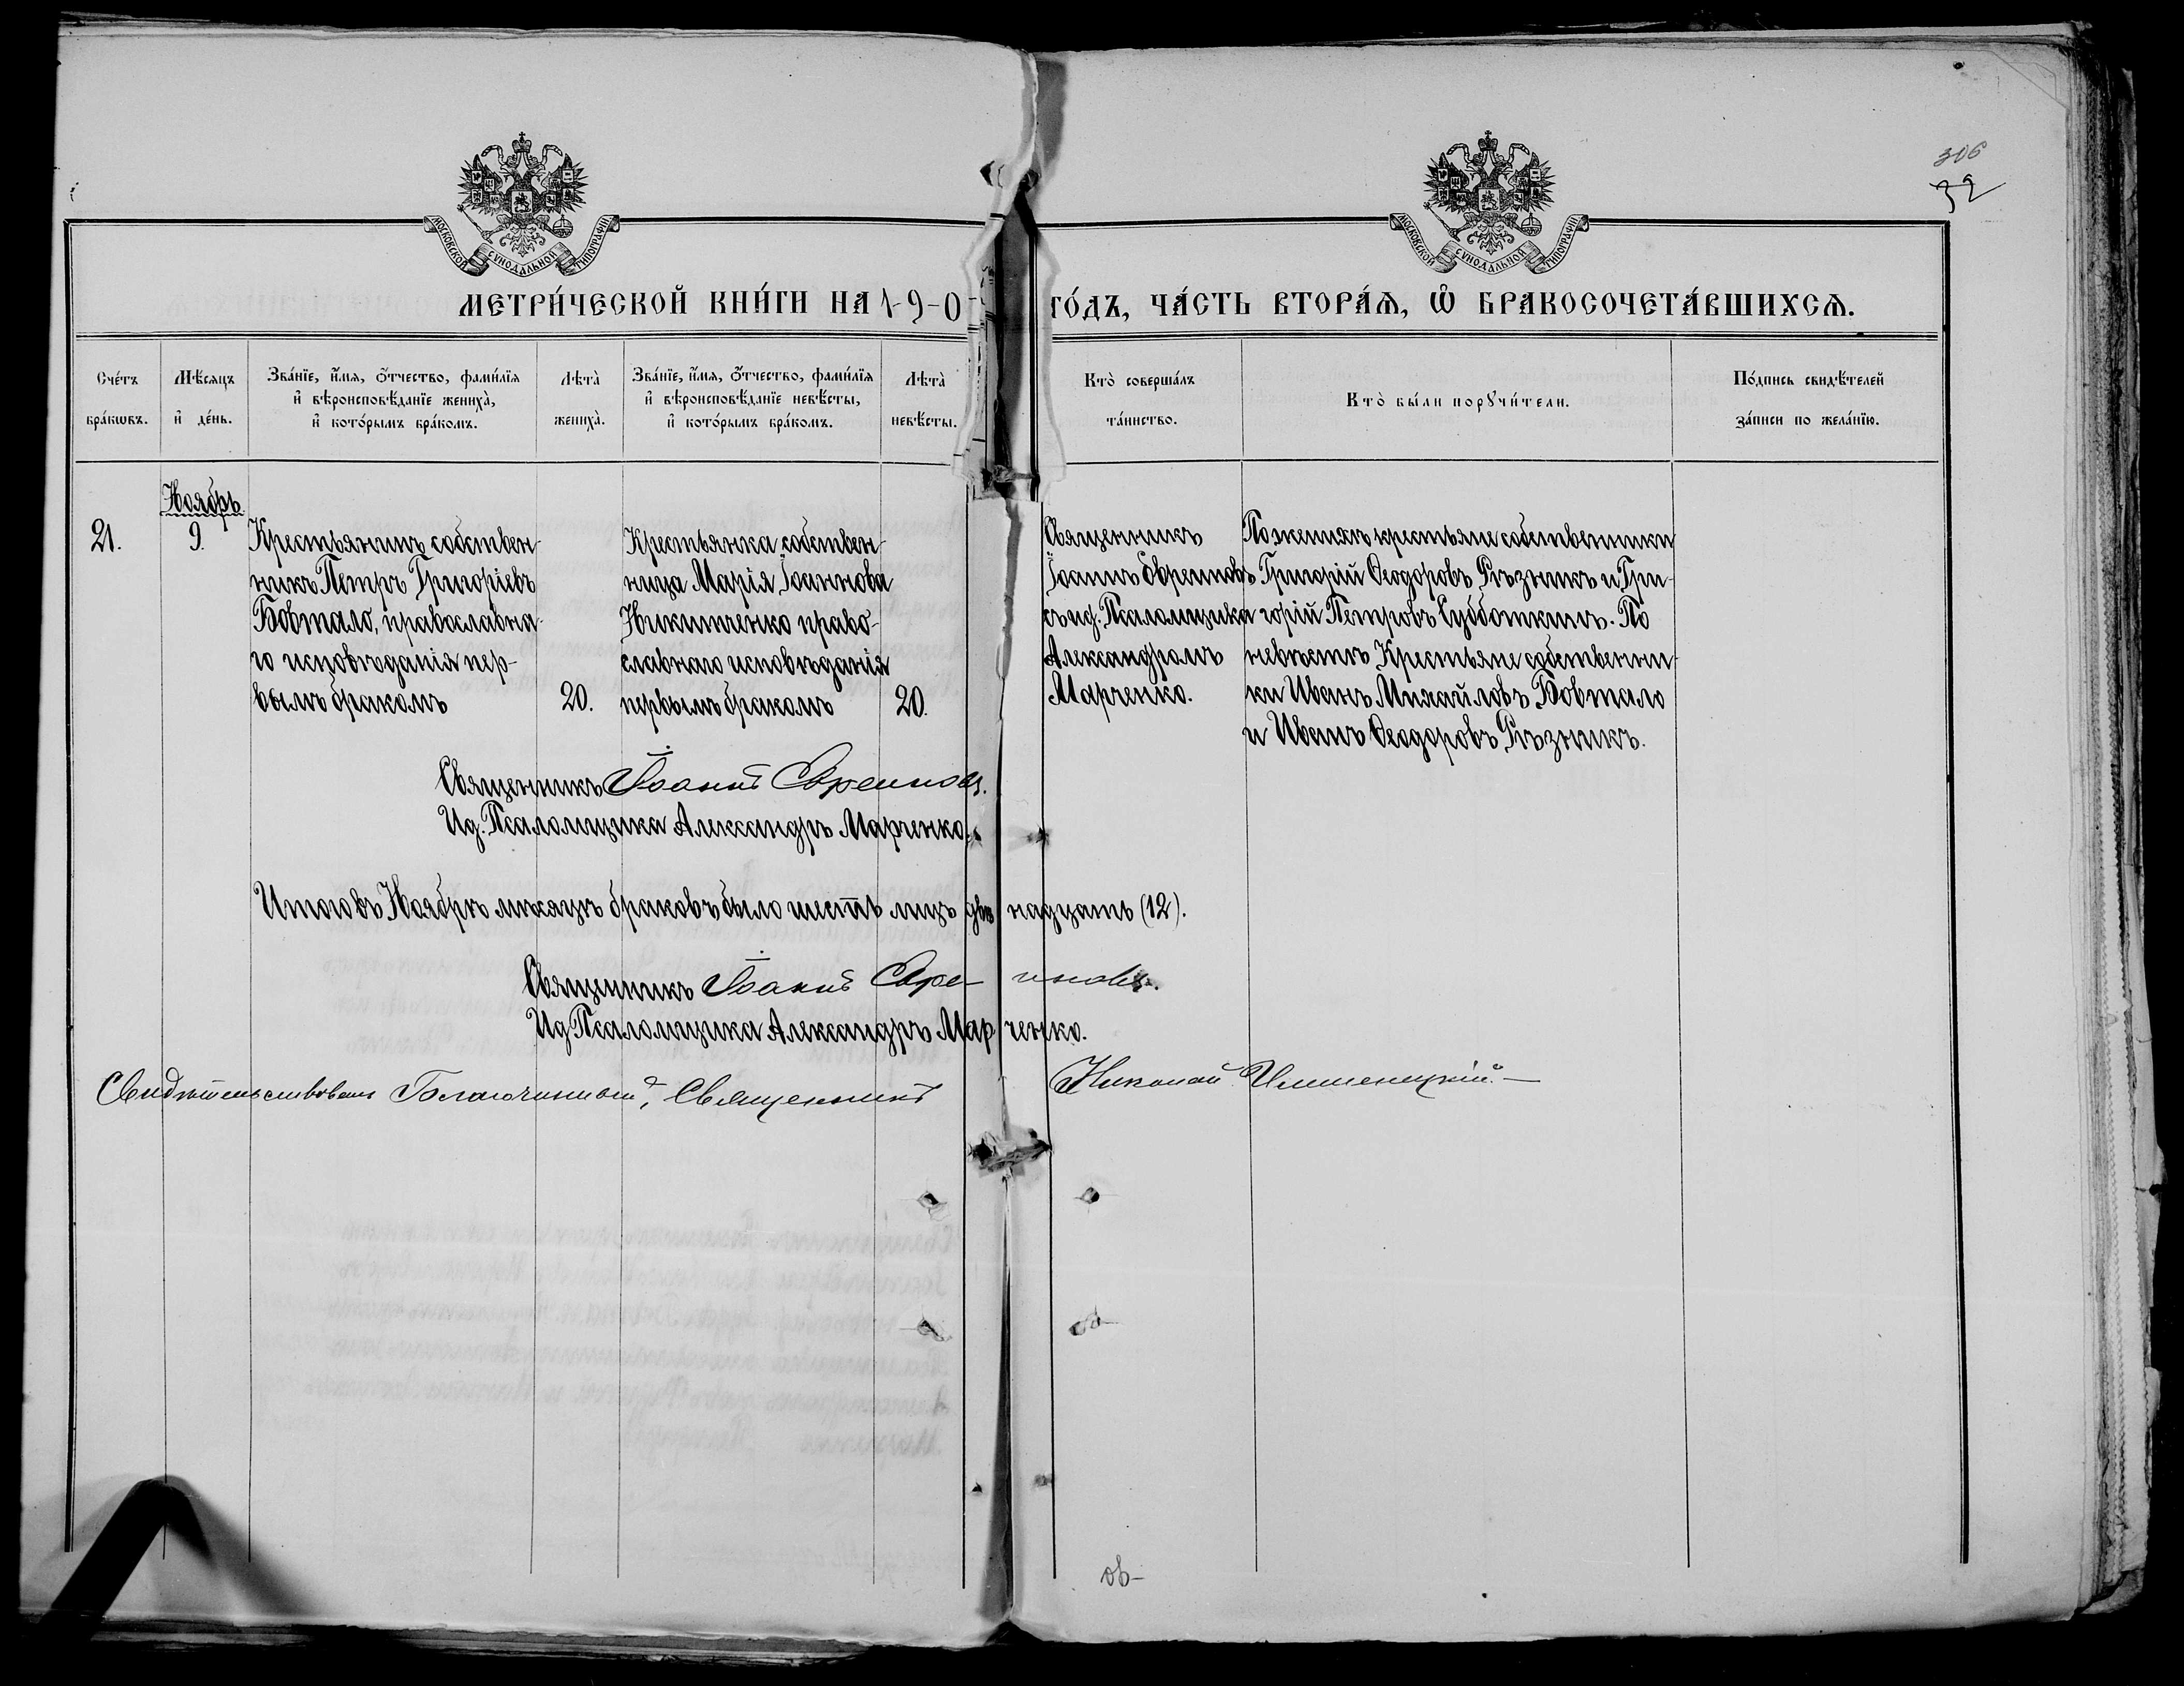 306
32
МОСКОВСКОЙ СѴНОДАЛЬНОЙ ТИПОГРАФІИ
МОСКОВСКОЙ СѴНОДАЛЬНОЙ ТИПОГРАФІИ
МЕТРИ́ЧЕСКОЙ КНИ́ГИ НА 1-9-0 ГО́ДЪ, ЧА́СТЬ ВТОРА́Ѧ, Ѽ БРАКОСОЧЕТА́ВШИХСѦ.
Сче́тъ бра́кѡвъ.
Мѣ́сѧцъ и҆ де́нь.
Зва́нїе, и҆́мѧ, ѻ҆́тчество, фами́лїѧ
и҆ вѣроисповѣ́данїе жениха̀,
и҆ кото́рымъ бра́комъ.
Лѣта̀ жениха̀.
Зва́нїе, и҆́мѧ, ѻ҆́тчество, фами́лїѧ
и҆ вѣроисповѣ́данїе невѣ́сты,
и҆ кото́рымъ бра́комъ.
Лѣта̀ невѣ́сты.
Кто̀ соверша́лъ
та́инство.
Кто̀ бы́ли порꙋчи́тели.
По́дпись свидѣ́телей
за́писи по жела́нїю.
Ноябрь
21.
9.
Крестьянинъ собствен-
никъ Петръ Григоріевъ
Бовтало, православна-
го исповѣданія пер-
вымъ бракомъ
20.
Крестьянка собствен-
ница Марія Іоаннова
Никитченко право-
славнаго исповѣданія
первымъ бракомъ
20.
Священникъ
Іоаннъ
съ ид. Псаломщика
Александромъ
Марченко.
По женихѣ крестьяне собственники
Григорій Ѳеодоровъ Рѣзникъ и Гри-
горій Петровъ Субботкинъ. По
невѣстѣ Крестьяне собственни-
ки Иванъ Михайловъ Бовтало
и Иванъ Ѳеодоровъ Рѣзникъ.
Священникъ Іоаннъ
Ид. Псаломщика Александръ Марченко.
Итого въ Ноябрѣ мѣсяцѣ браковъ было шесть лицъ двѣнадцать (12).
Священникъ Іоаннъ
Ид Псаломщика Александръ Марченко.
Свидѣтельствовалъ Благочинный, Священникъ Николай